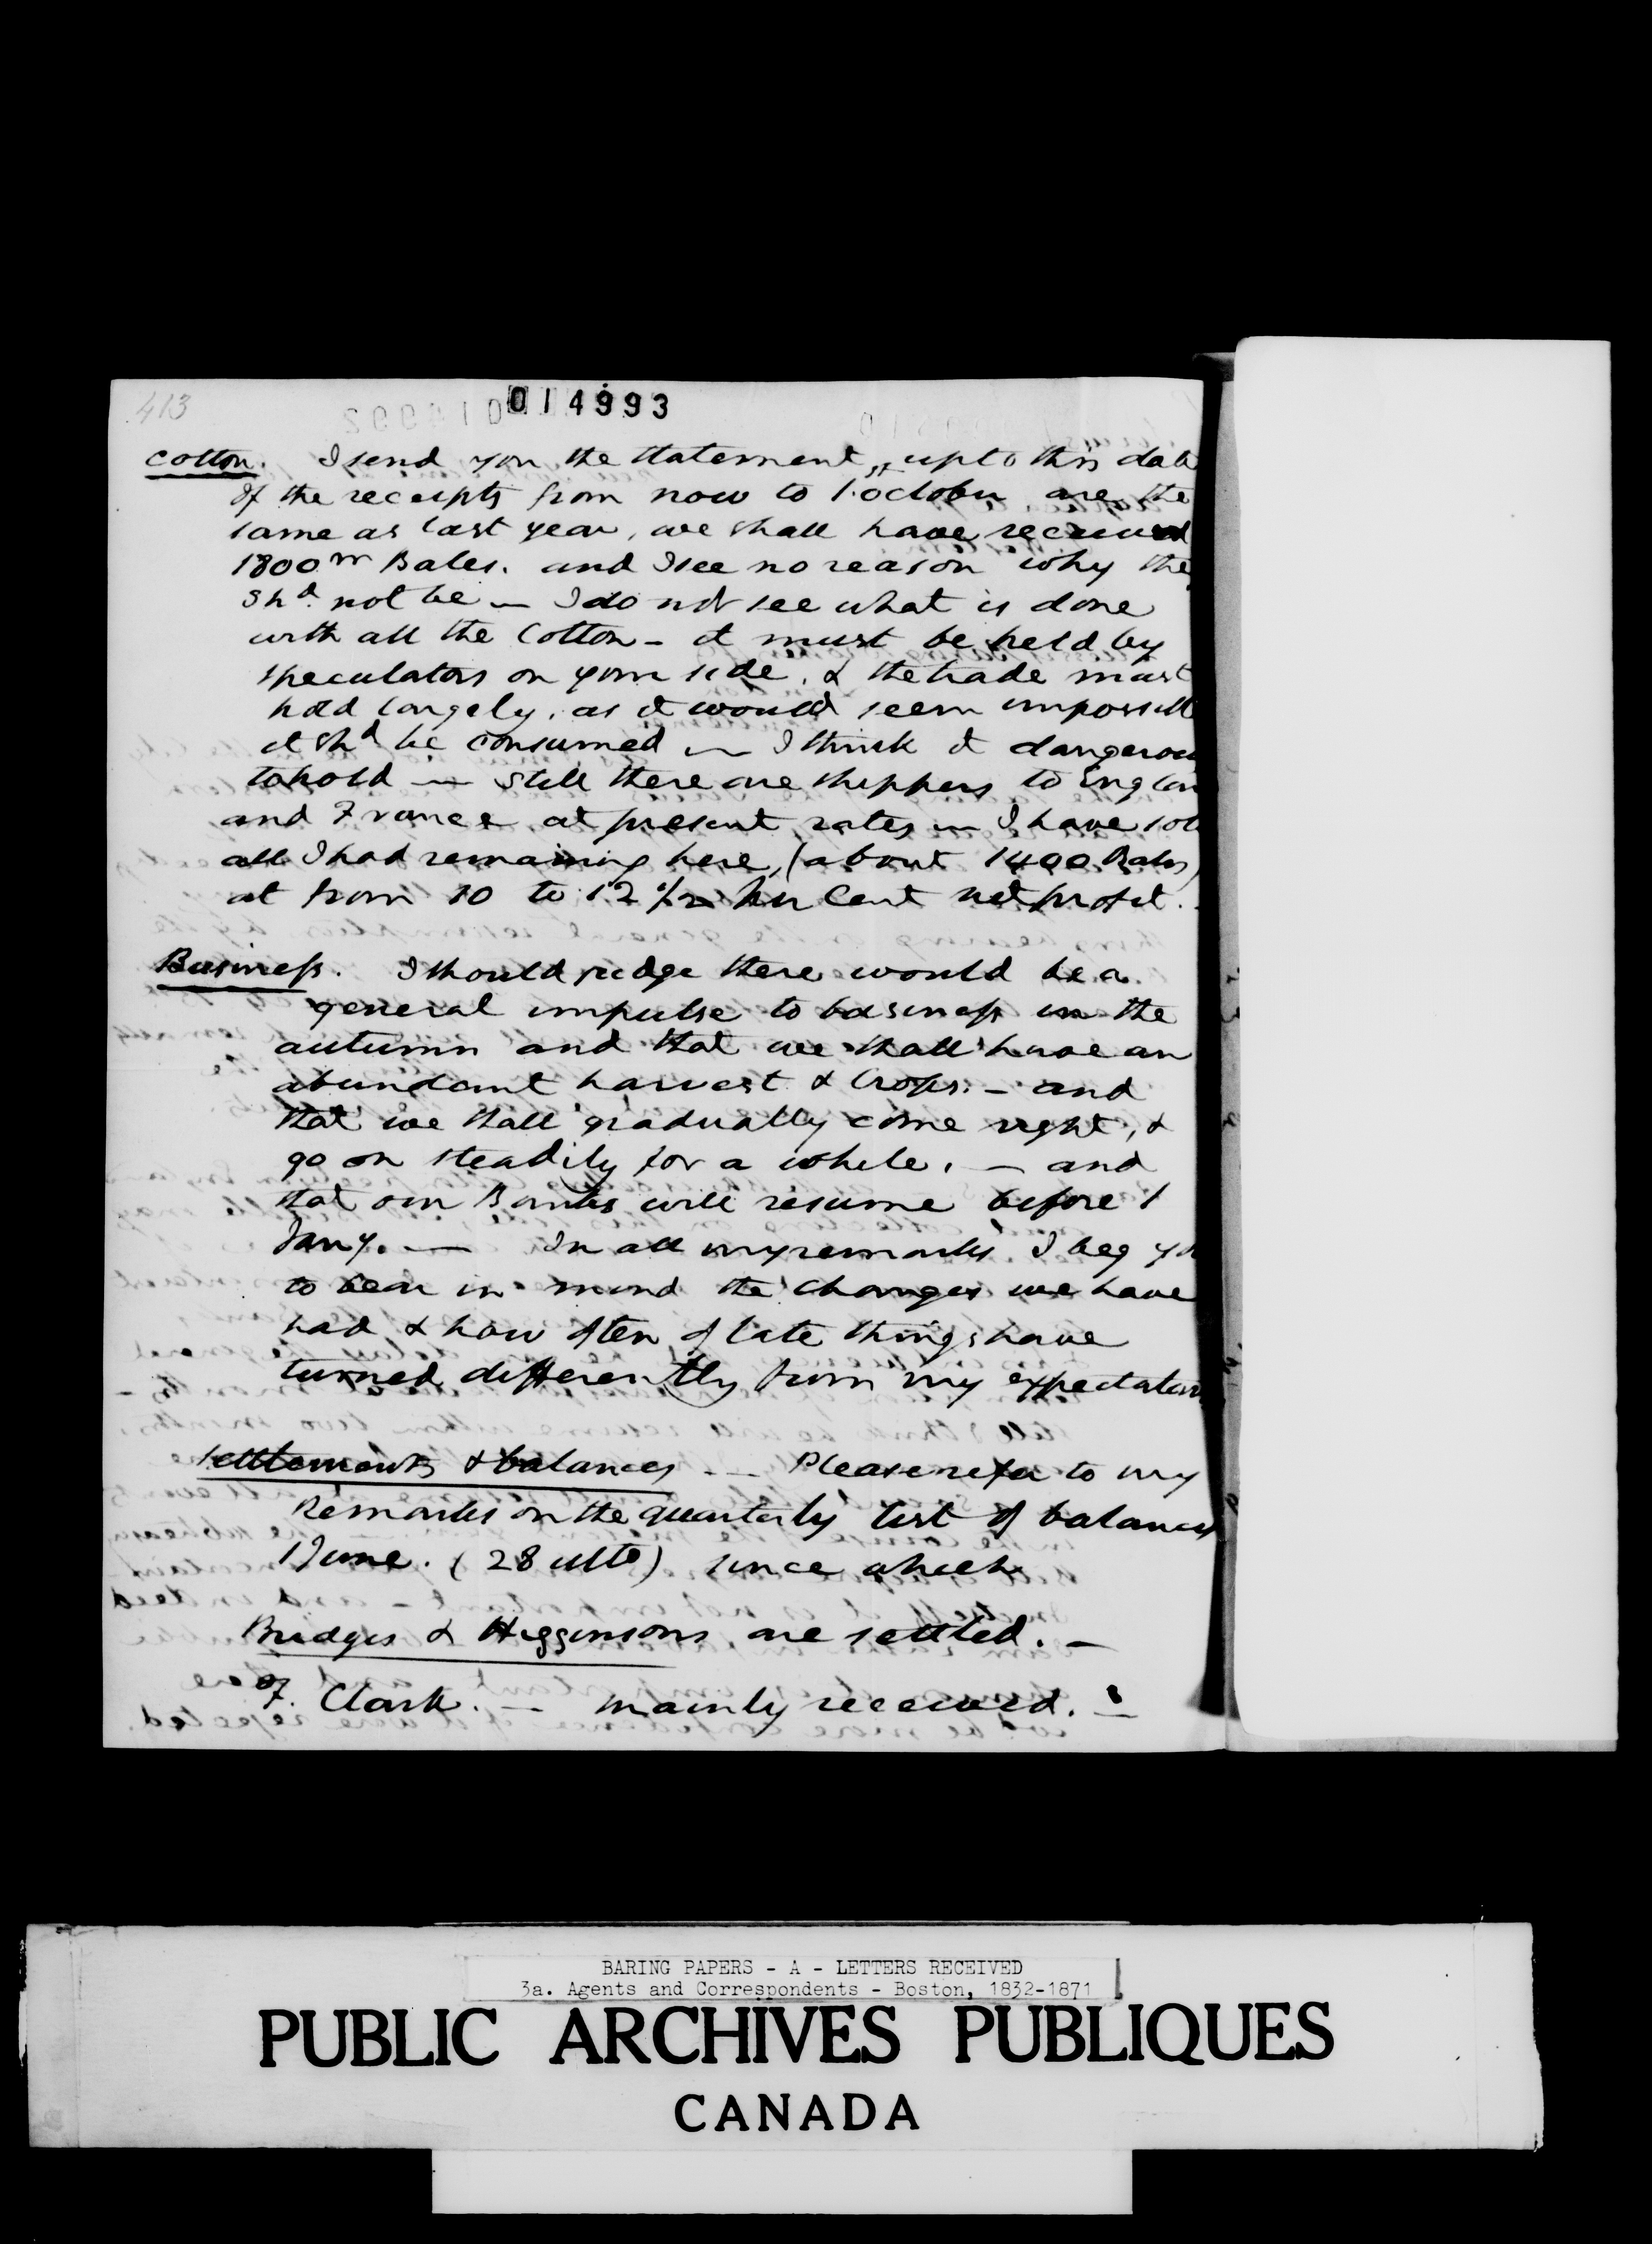 413
014993
Cotton. I send you the statement, upto this date
If the receipts from now to 1 October are the
same as last year, we shall have received
1800 m Bales. and I see no reason why the
shd. not be — I do not see what is done
with all the Cotton - it must be held by
speculators on your side, & the trade must
hold largely, as it would seem impossibl
it shd be consumed — I think it dangerou
to hold — Still there are shippers to Englan
and France at present rates — I have sol
all I had remaining here, (about 1400 Bales)
at from 10 to 12 1/2 per Cent net profit.
Business. I should judge there would be a
general impulse to business in the
autumn and that we shall have an
abundant harvest & Crops. - and
that we shall gradually come right, &
go on steadily for a while, — and
that our Banks will resume before 1
Jany. — In all my remarks I beg yo
to bear in mind the changes we have
had & how often of late things have
turned differently from my expectation
Settlements & balances — Please refer to my
Remarks on the quarterly list of balances
1 June. (28 ulto) since which
Bridges & Higginsons are settled. —
F. Clark. — mainly received. —
BARING PAPERS - A - LETTERS RECEIVED
3a. Agents and Correspondents - Boston, 1832-1871
PUBLIC ARCHIVES PUBLIQUES
CANADA